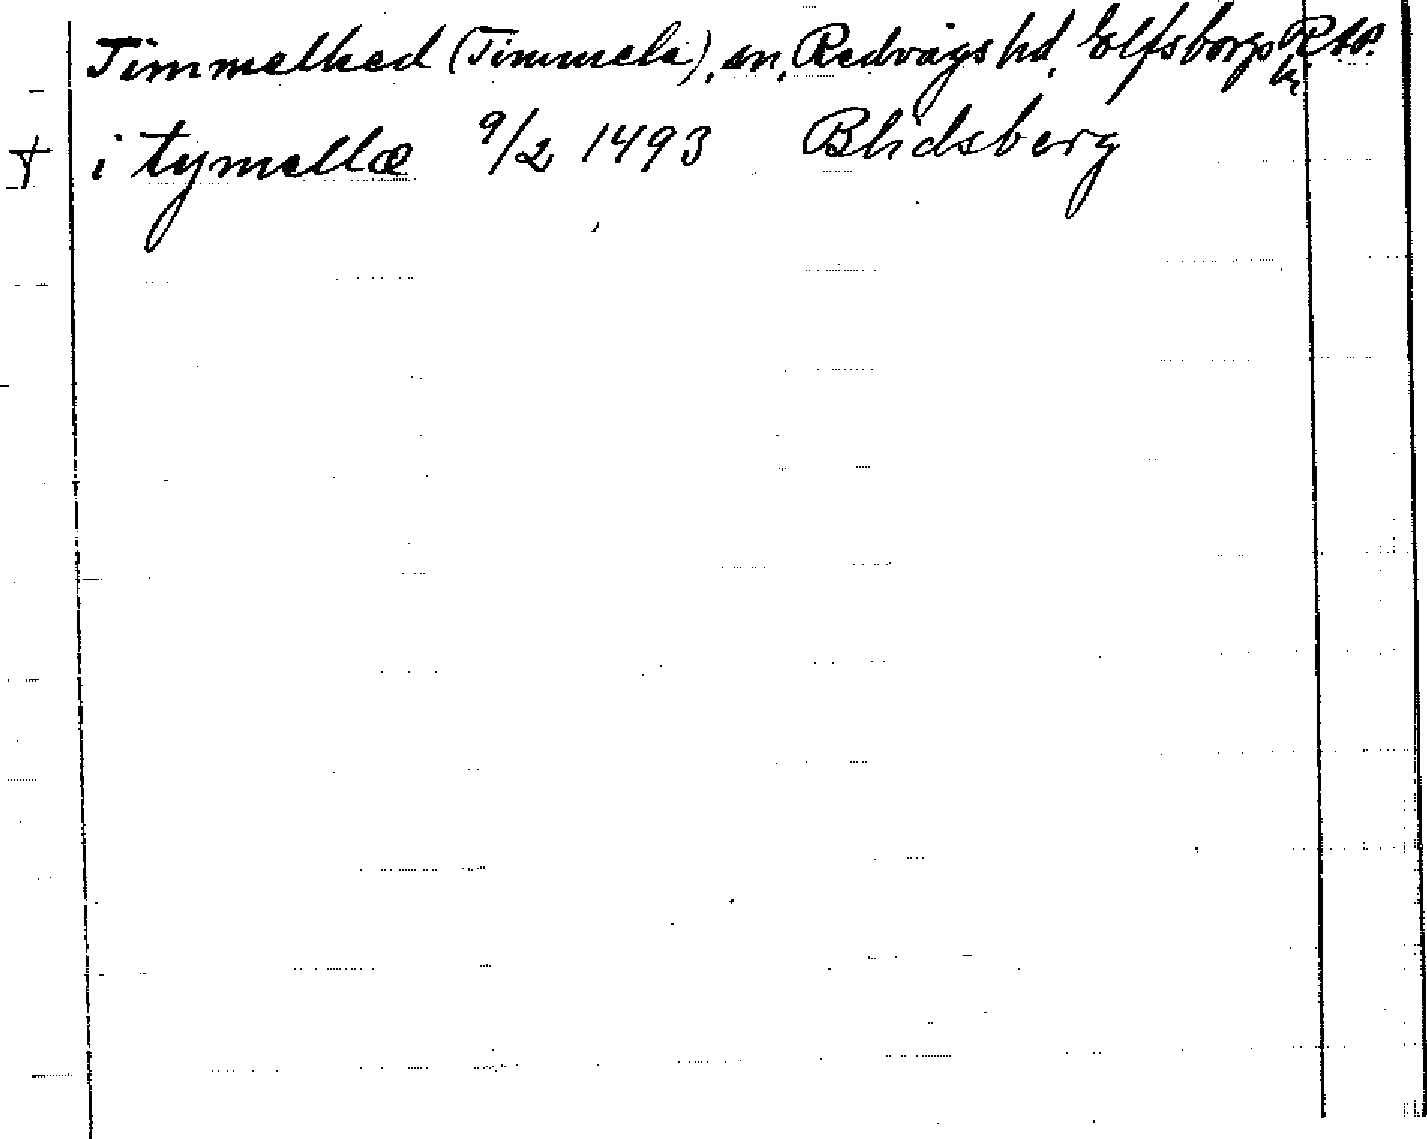 Timmelhed (Timmele), sn, Redvägs hd, Elfsborgs
i tymellæ 9/2 1493 Blidsberg